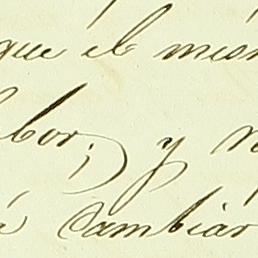 que el mis
bor; y n
á cambiar